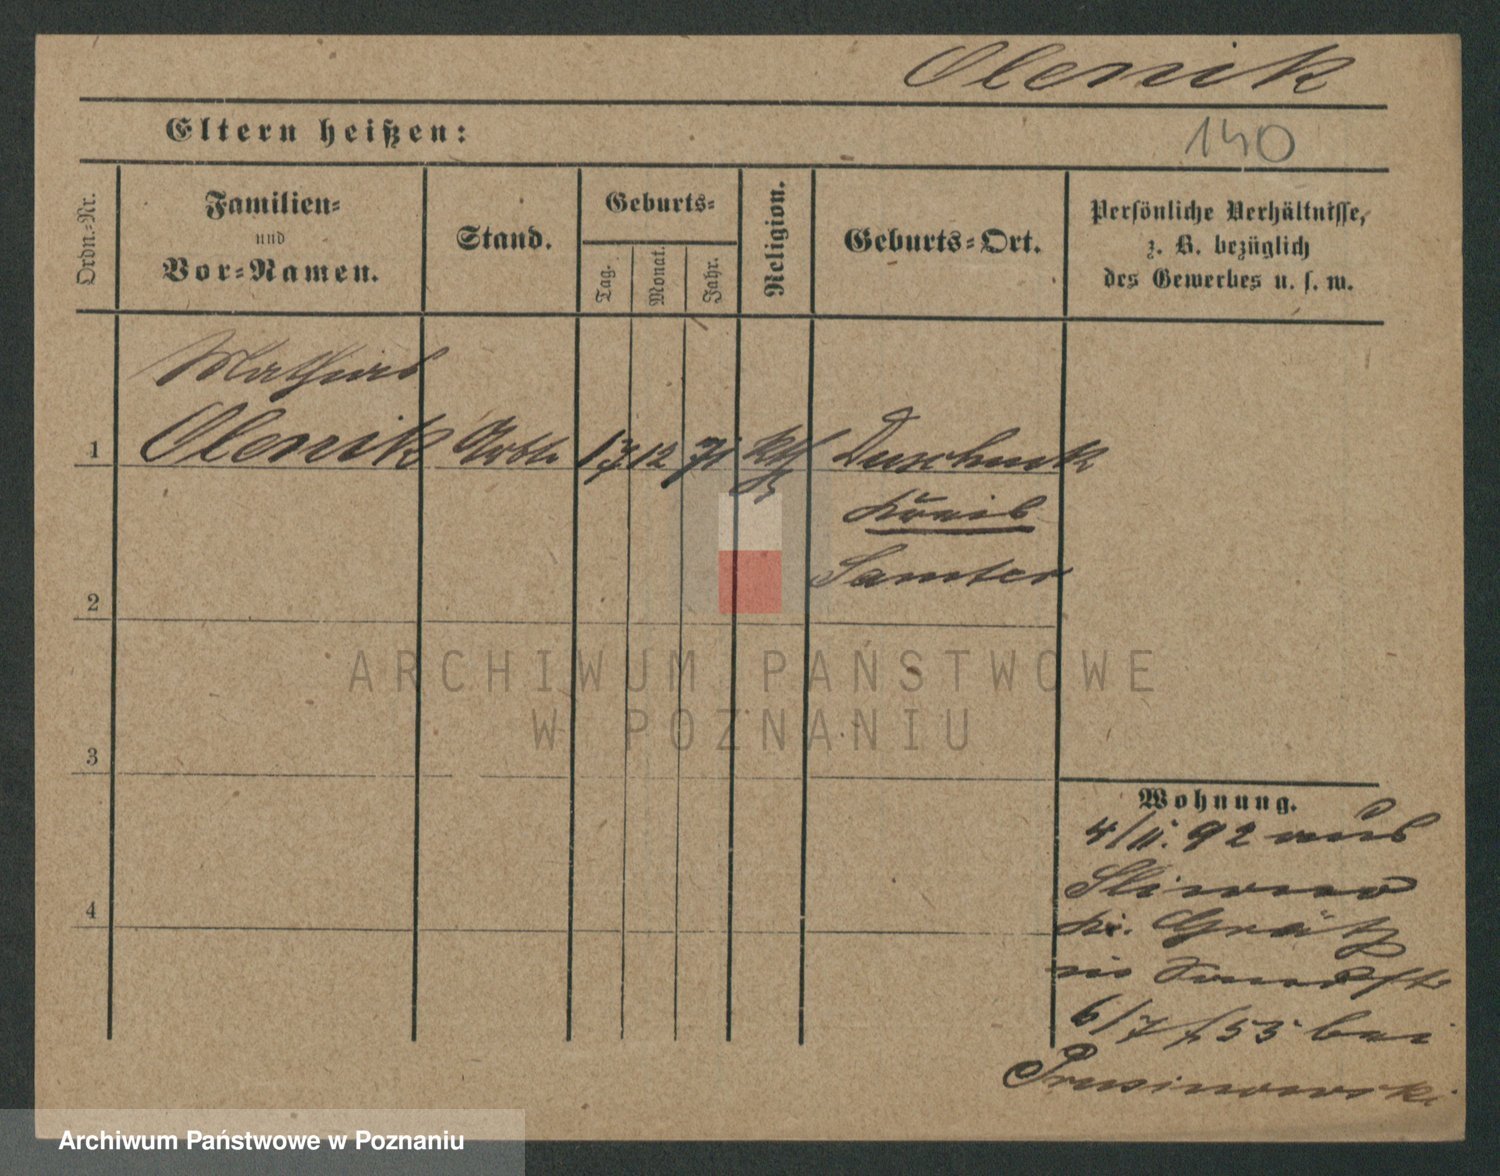 Olenik
Eltern heißen:
140
Ordn.-Nr.
Familien-
und
Vor-Namen.
Stand.
Geburts-
Tag.
Monat.
Jahr.
Religion.
Geburts-Ort.
Persönliche Verhältnisse,
z. B. bezüglich
des Gewerbes u. s. w.
Mathias
1 Olenik Arbtr 17 12 71 kth Duschnik
Kreis
Samter
2
3
4
Wohnung.
4/11. 92 aus
Sliwno
Kr. Grätz
6/7 /53 bei
Prusinowski
ARCHIWUM PAŃSTWOWE
W POZNANIU
Archiwum Państwowe w Poznaniu